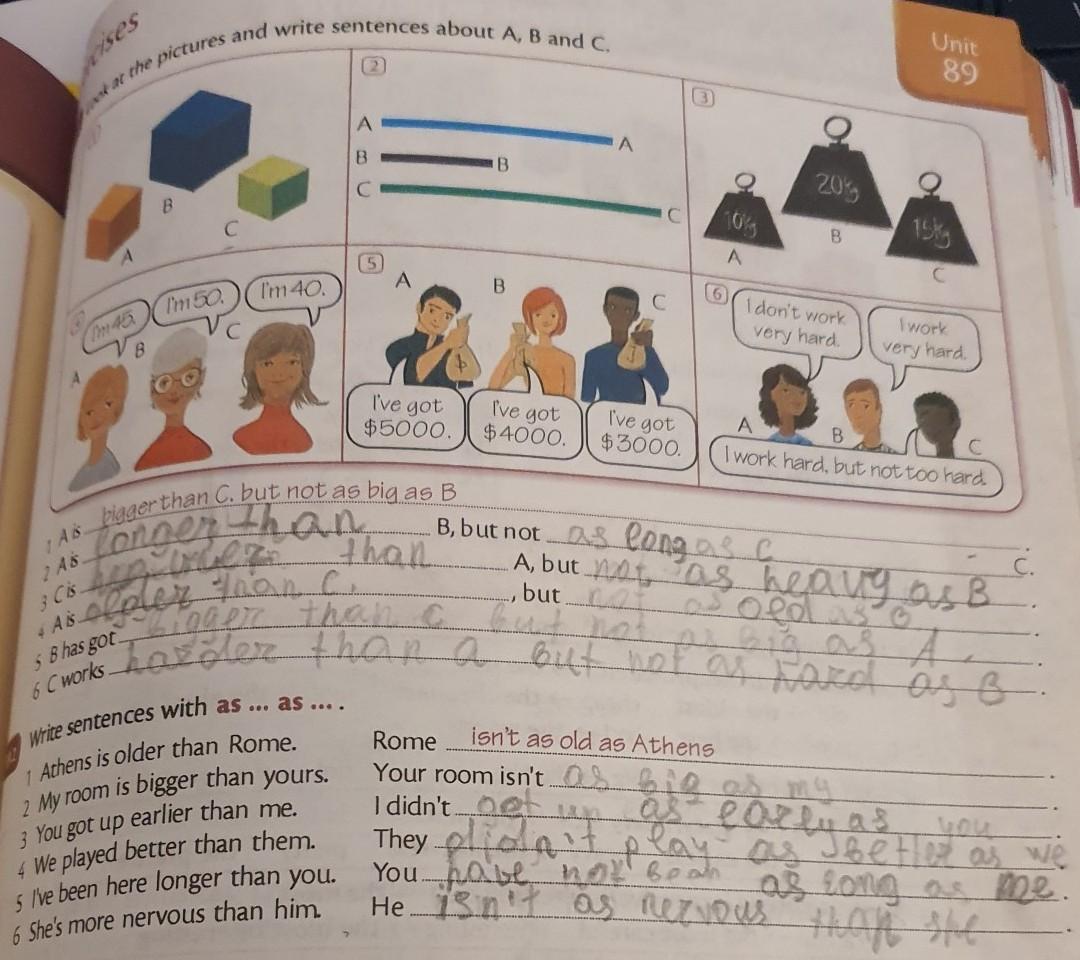 cises
Look at the pictures and write sentences about A, B and C.
Unit
89
B
C
A
2
A
A
B
B
C
C
3
10kg
20kg
15kg
A
B
C
I'm 45.
I'm 50.
I'm 40.
A
B
C
5
A
B
C
I've got
$5000.
I've got
$4000.
I've got
$3000.
6
I don't work
very hard.
I work
very hard.
A
B
C
I work hard, but not too hard.
1 A is bigger than C, but not as big as B .
2 A is longer than B, but not as long as C C.
3 C is than A, but not as heavy as B .
4 A is older than C. , but not as old as B .
5 B has got bigger than C but not as big as A .
6 C works harder than a but not as hard as B .
Write sentences with as ... as ... .
1 Athens is older than Rome. Rome isn't as old as Athens .
2 My room is bigger than yours. Your room isn't as big as my .
3 You got up earlier than me. I didn't get up as early as you .
4 We played better than them. They didn't play as better as we
5 I've been here longer than you. You have not as long as me .
6 She's more nervous than him. He isn't as nervous than she .